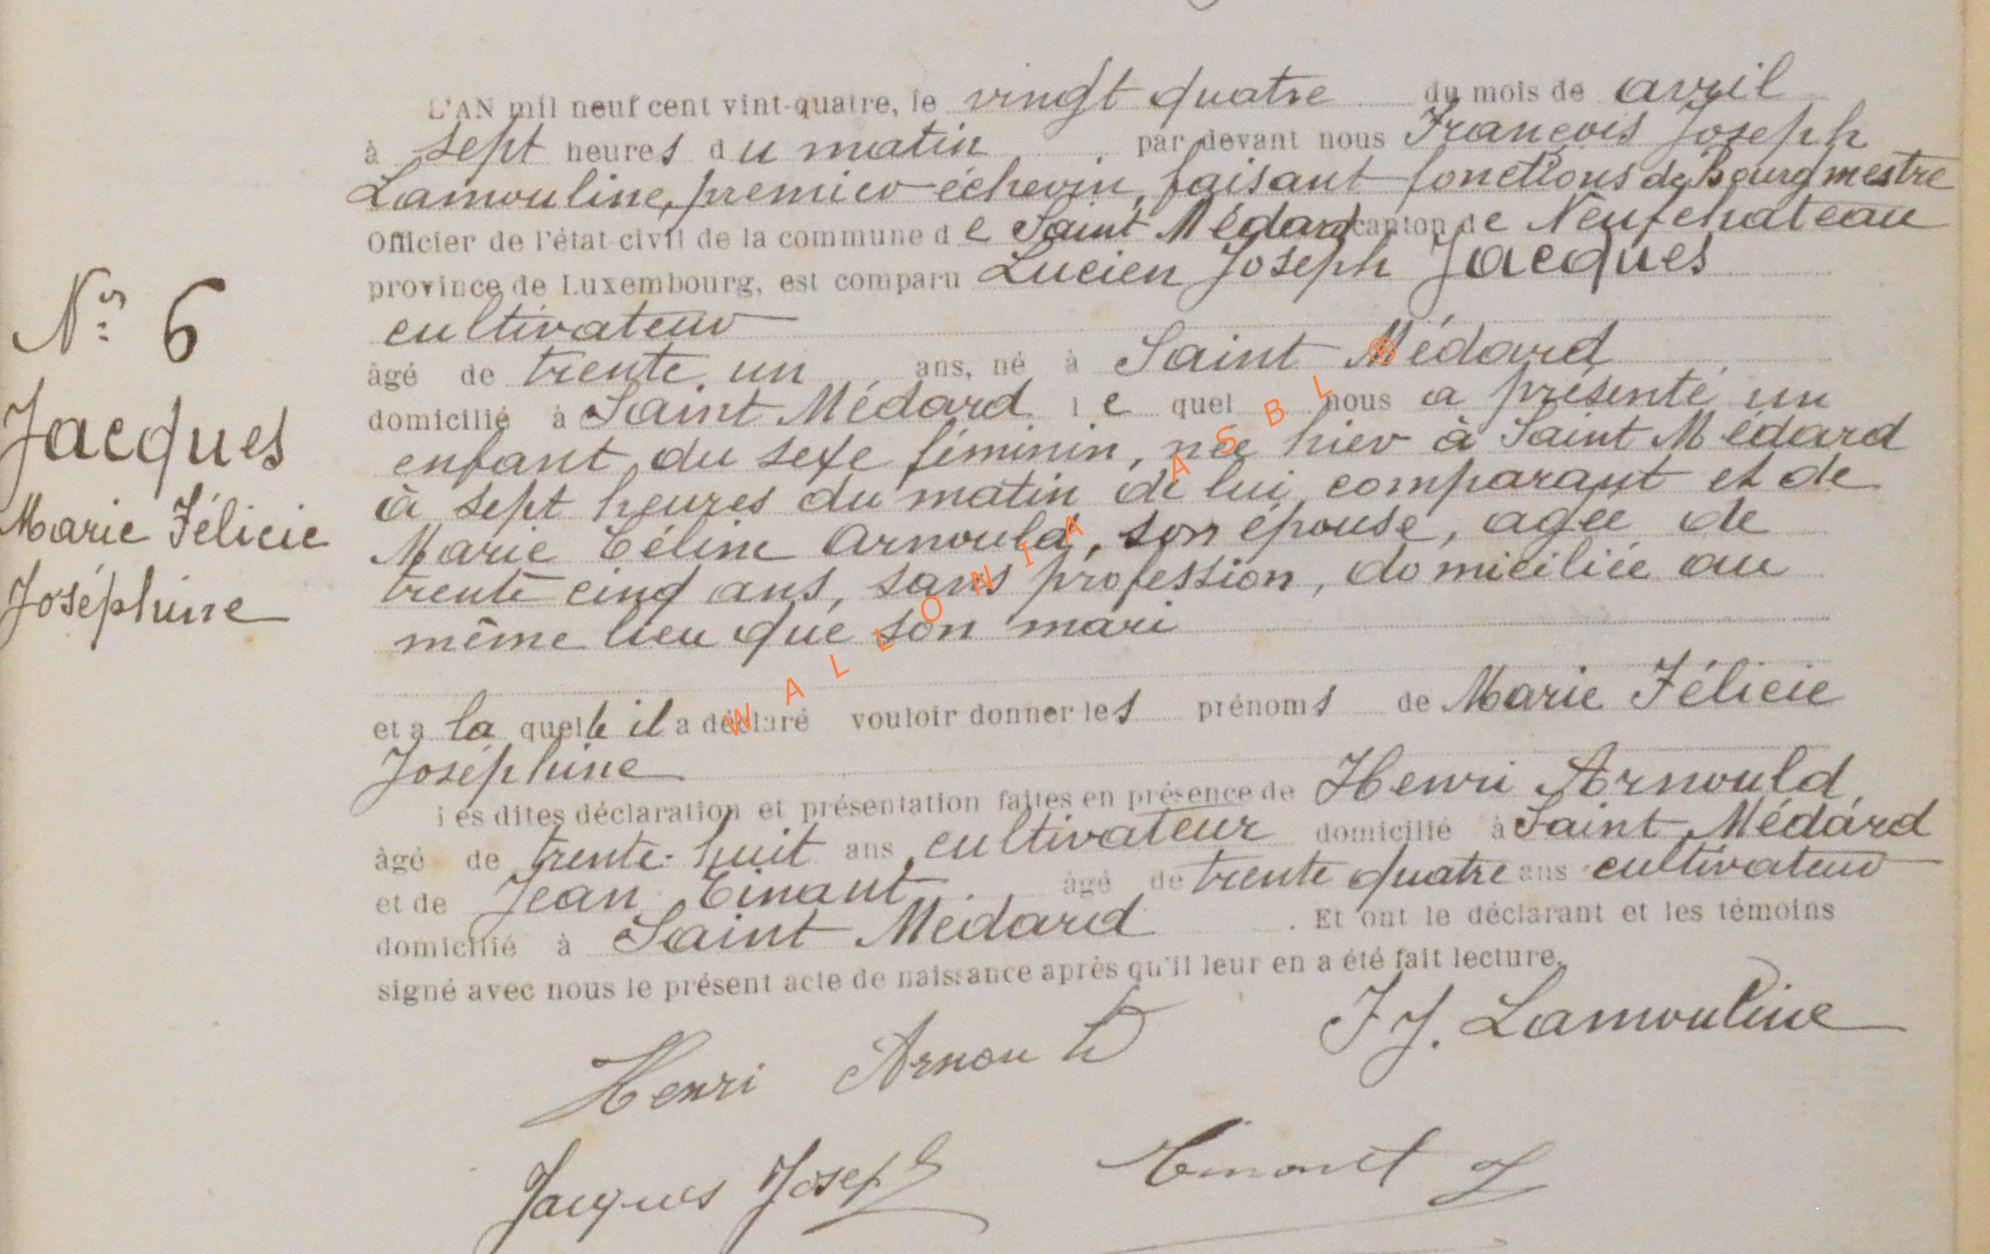 L'AN mil neuf cent vint-quatre, le vingt quatre du mois de avril
à sept heures du matin par devant nous François Joseph
Lamouline, premier échevin, faisant fonctions de Bourgmestre
Officier de l'état civil de la commune de Saint Médard canton de Neufchateau
province de Luxembourg, est comparu Lucien Joseph Jacques
cultivateur
âgé de trente un ans, né à Saint Médard
domicilié à Saint Médard le quel nous a présenté un
enfant du sexe féminin, née hier à Saint Médard
à sept heures du matin de lui comparant et de
Marie Céline Arnould, son épouse, agée de
trente cinq ans, sans profession, domiciliée au
même lieu que son mari
et a la quelle il a déclaré vouloir donner les prénoms de Marie Félicie
Joséphine
les dites déclaration et présentation faites en présence de Henri Arnould
âgé de trente-huit ans cultivateur domicilié à Saint Médard
et de Jean Tinant âgé de trente quatre ans cultivateur
domicilié à Saint Médard. Et ont le déclarant et les témoins
signé avec nous le présent acte de naissance après qu'il leur en a été fait lecture.
N° 6
Jacques
Marie Félicie
Joséphine
F J. Lamouline
Henri Arnould
Jacques Joseph
Tinant J
WALLONIA ASBL ®